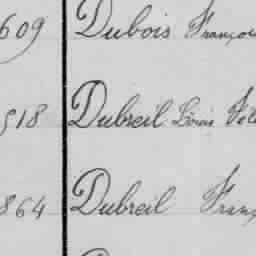 609 Dubois Françoi
518 Dubreil Louis Fél
864 Dubreil Franç